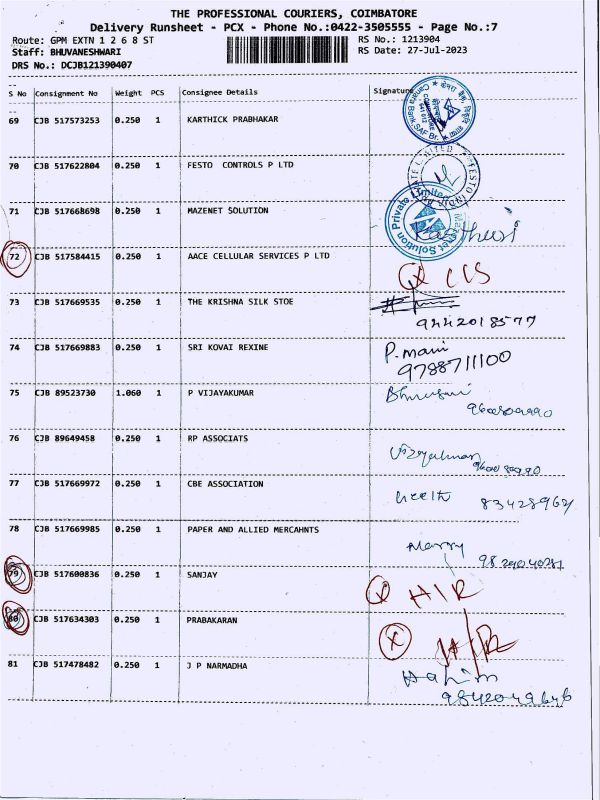 THE PROFESSIONAL COURIERS, COIMBATORE
Delivery Runsheet - PCX - Phone No.:0422-3505555 - Page No.:7
Route: GPM EXTN 1 2 6 8 ST RS No.: 1213904
Staff: BHUVANESHWARI RS Date: 27-Jul-2023
DRS No.: DCJB121390407
S No Consignment No Weight PCS Consignee Details Signature
69 CJB 517573253 0.250 1 KARTHICK PRABHAKAR
70 CJB 517622804 0.250 1 FESTO CONTROLS P LTD
71 CJB 517668698 0.250 1 MAZENET SOLUTION
Mazenet Solution Private Limited
72 CJB 517584415 0.250 1 AACE CELLULAR SERVICES P LTD
73 CJB 517669535 0.250 1 THE KRISHNA SILK STOE
9442018577
74 CJB 517669883 0.250 1 SRI KOVAI REXINE P. mani
9788711100
75 CJB 89523730 1.060 1 P VIJAYAKUMAR
76 CJB 89649458 0.250 1 RP ASSOCIATS
77 CJB 517669972 0.250 1 CBE ASSOCIATION
78 CJB 517669985 0.250 1 PAPER AND ALLIED MERCAHNTS
79 CJB 517600836 0.250 1 SANJAY
80 CJB 517634303 0.250 1 PRABAKARAN
81 CJB 517478482 0.250 1 J P NARMADHA
9842049646